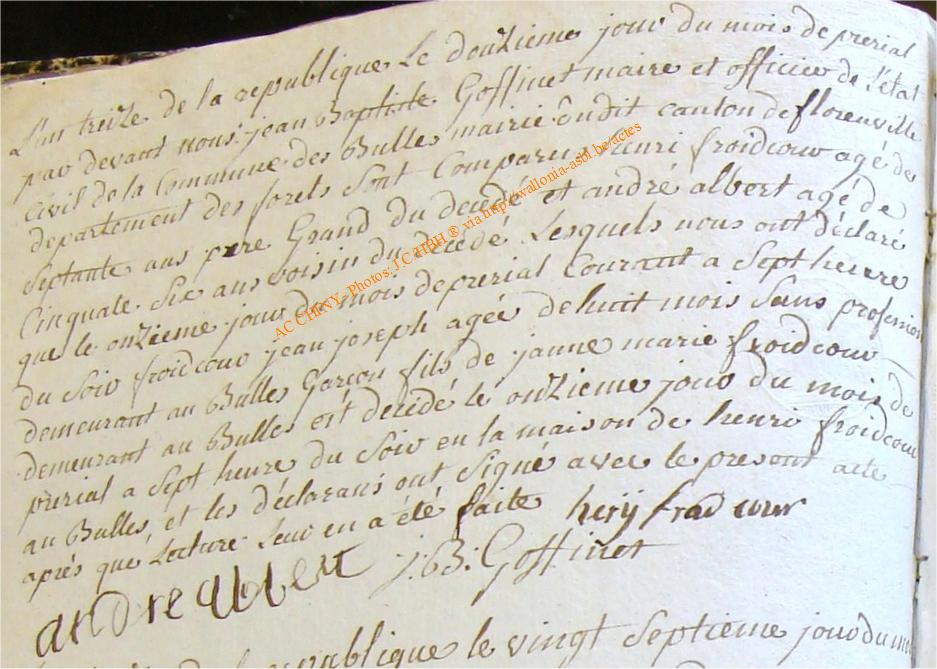 L'an treize de la republique Le douzieme jour du mois de prerial
par devant nous jean Baptiste Goffinet maire et officier de l'état
Civil de la Commune des Bulles mairie dudit canton de florenville
departement des forets Sont Comparu henri froidcour agé de
Septante ans pere Grand du décédé et andré albert agé de
Cinquate Six ans voisin du décédé Lesquels nous ont déclaré
que le onzieme jour du mois de prerial Courant a Sept heure
du Soir froidcour jean joseph agée de huit mois Sans profession
demeurant au Bulles Garçon fils de janne marie froidcour
demeurant au Bulles est décédé le onzieme jour du mois de
prerial a Sept heure du Soir en la maison de henri froidcour
au Bulles, et les déclarans ont Signé avec le present acte
après que Lecture Leur en a été faite henri froidcour
andre albert J:B: Goffinet
republique le vingt Septieme jour du
AC CHINY - Photos: J.C HBH ® via http://wallonia-asbl.be/actes